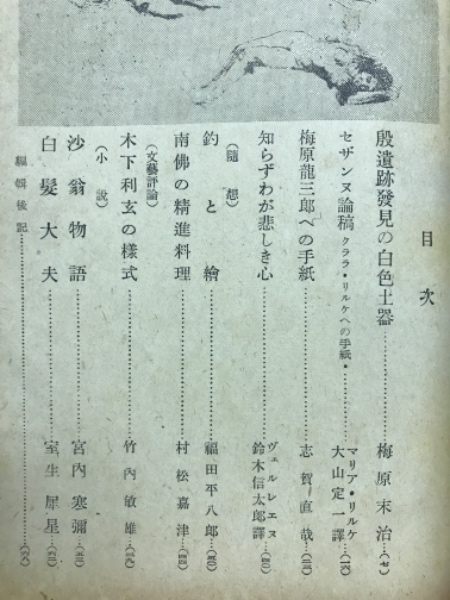 目次
殷遺跡發見の白色土器……梅原末治…(七)
セザンヌ論稿 クララ・リルケへの手紙・……マリア・リルケ 大山定一譯…(一六)
梅原龍三郎への手紙……志賀直哉…
知らずわが悲しき心……ヴェルレエヌ 鈴木信太郎譯…
(隨想)
釣と繪……福田平八郎…
南佛の精進料理……村松嘉津…
(文藝評論)
木下利玄の樣式……竹內敏雄…
(小說)
沙翁物語……宮內寒彌…
白髮大夫……室生犀星…
編輯後記……(六八)